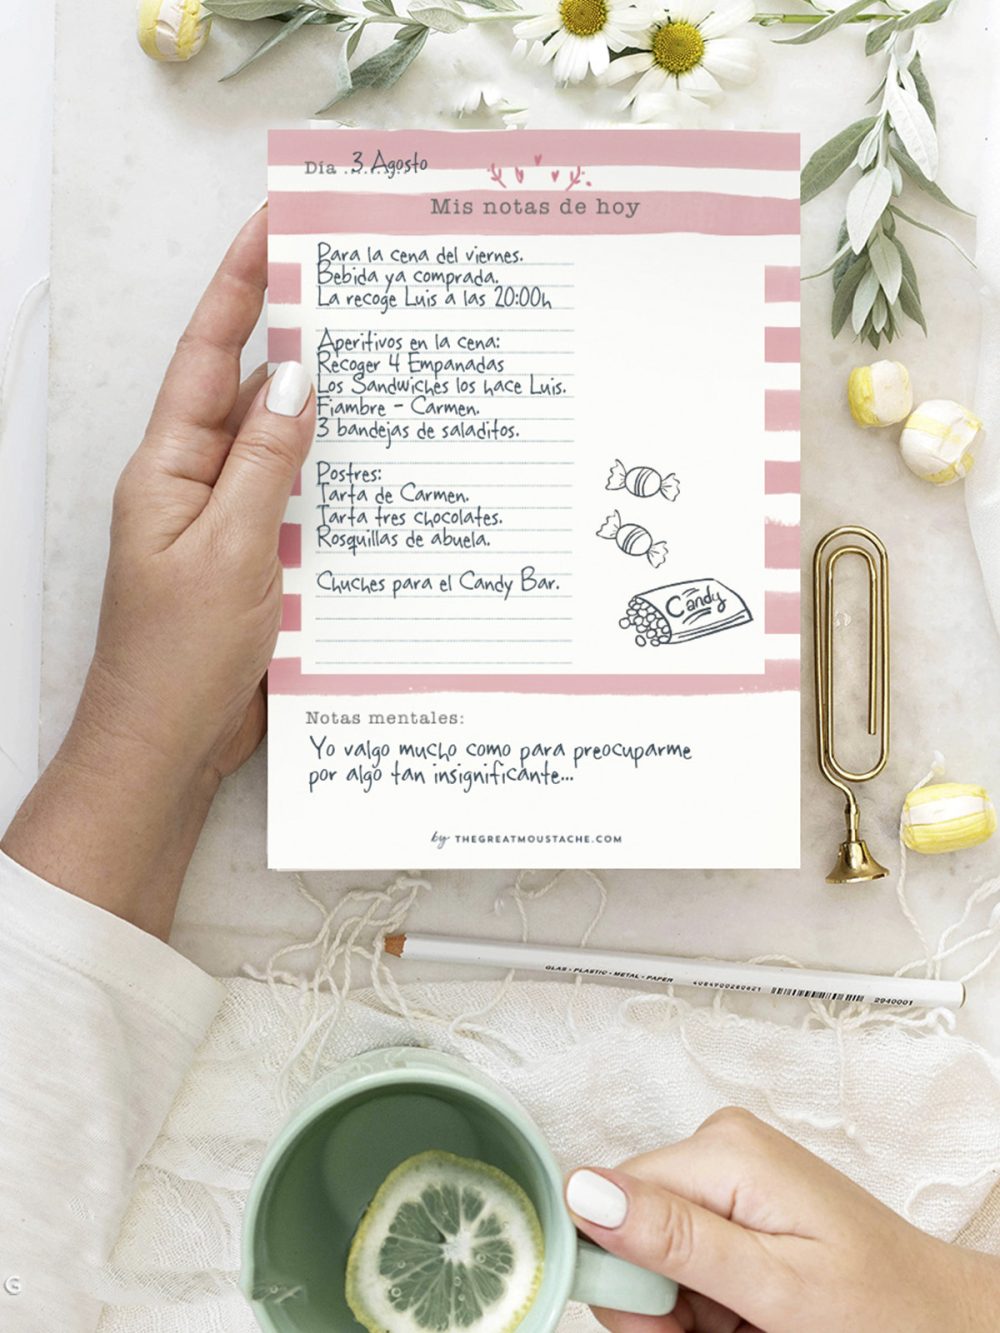 Día ........ 3 Agosto
Mis notas de hoy
Para la cena del viernes.
Bebida ya comprada.
La recoge Luis a las 20:00h
Aperitivos en la cena:
Recoger 4 Empanadas
Los Sandwiches los hace Luis.
Fiambre - Carmen.
3 bandejas de saladitos.
Postres:
Tarta de Carmen.
Tarta tres chocolates.
Rosquillas de abuela.
Chuches para el Candy Bar.
Candy
Notas mentales:
Yo valgo mucho como para preocuparme
por algo tan insignificante...
by THEGREATMOUSTACHE.COM
GLAS - PLASTIC - METAL - PAPER
2940001
G